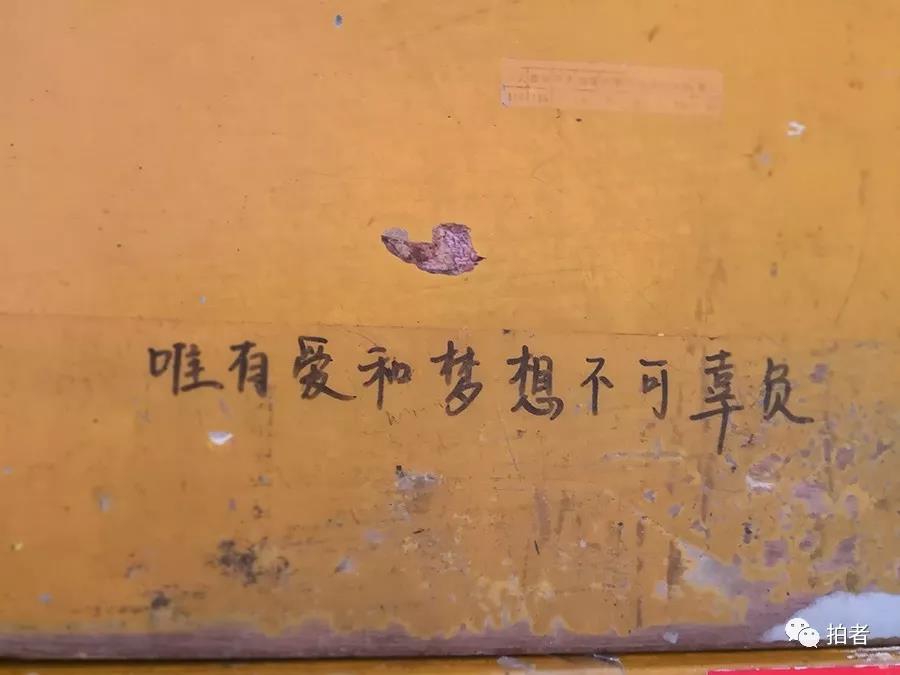 唯有爱和梦想不可辜负
拍者